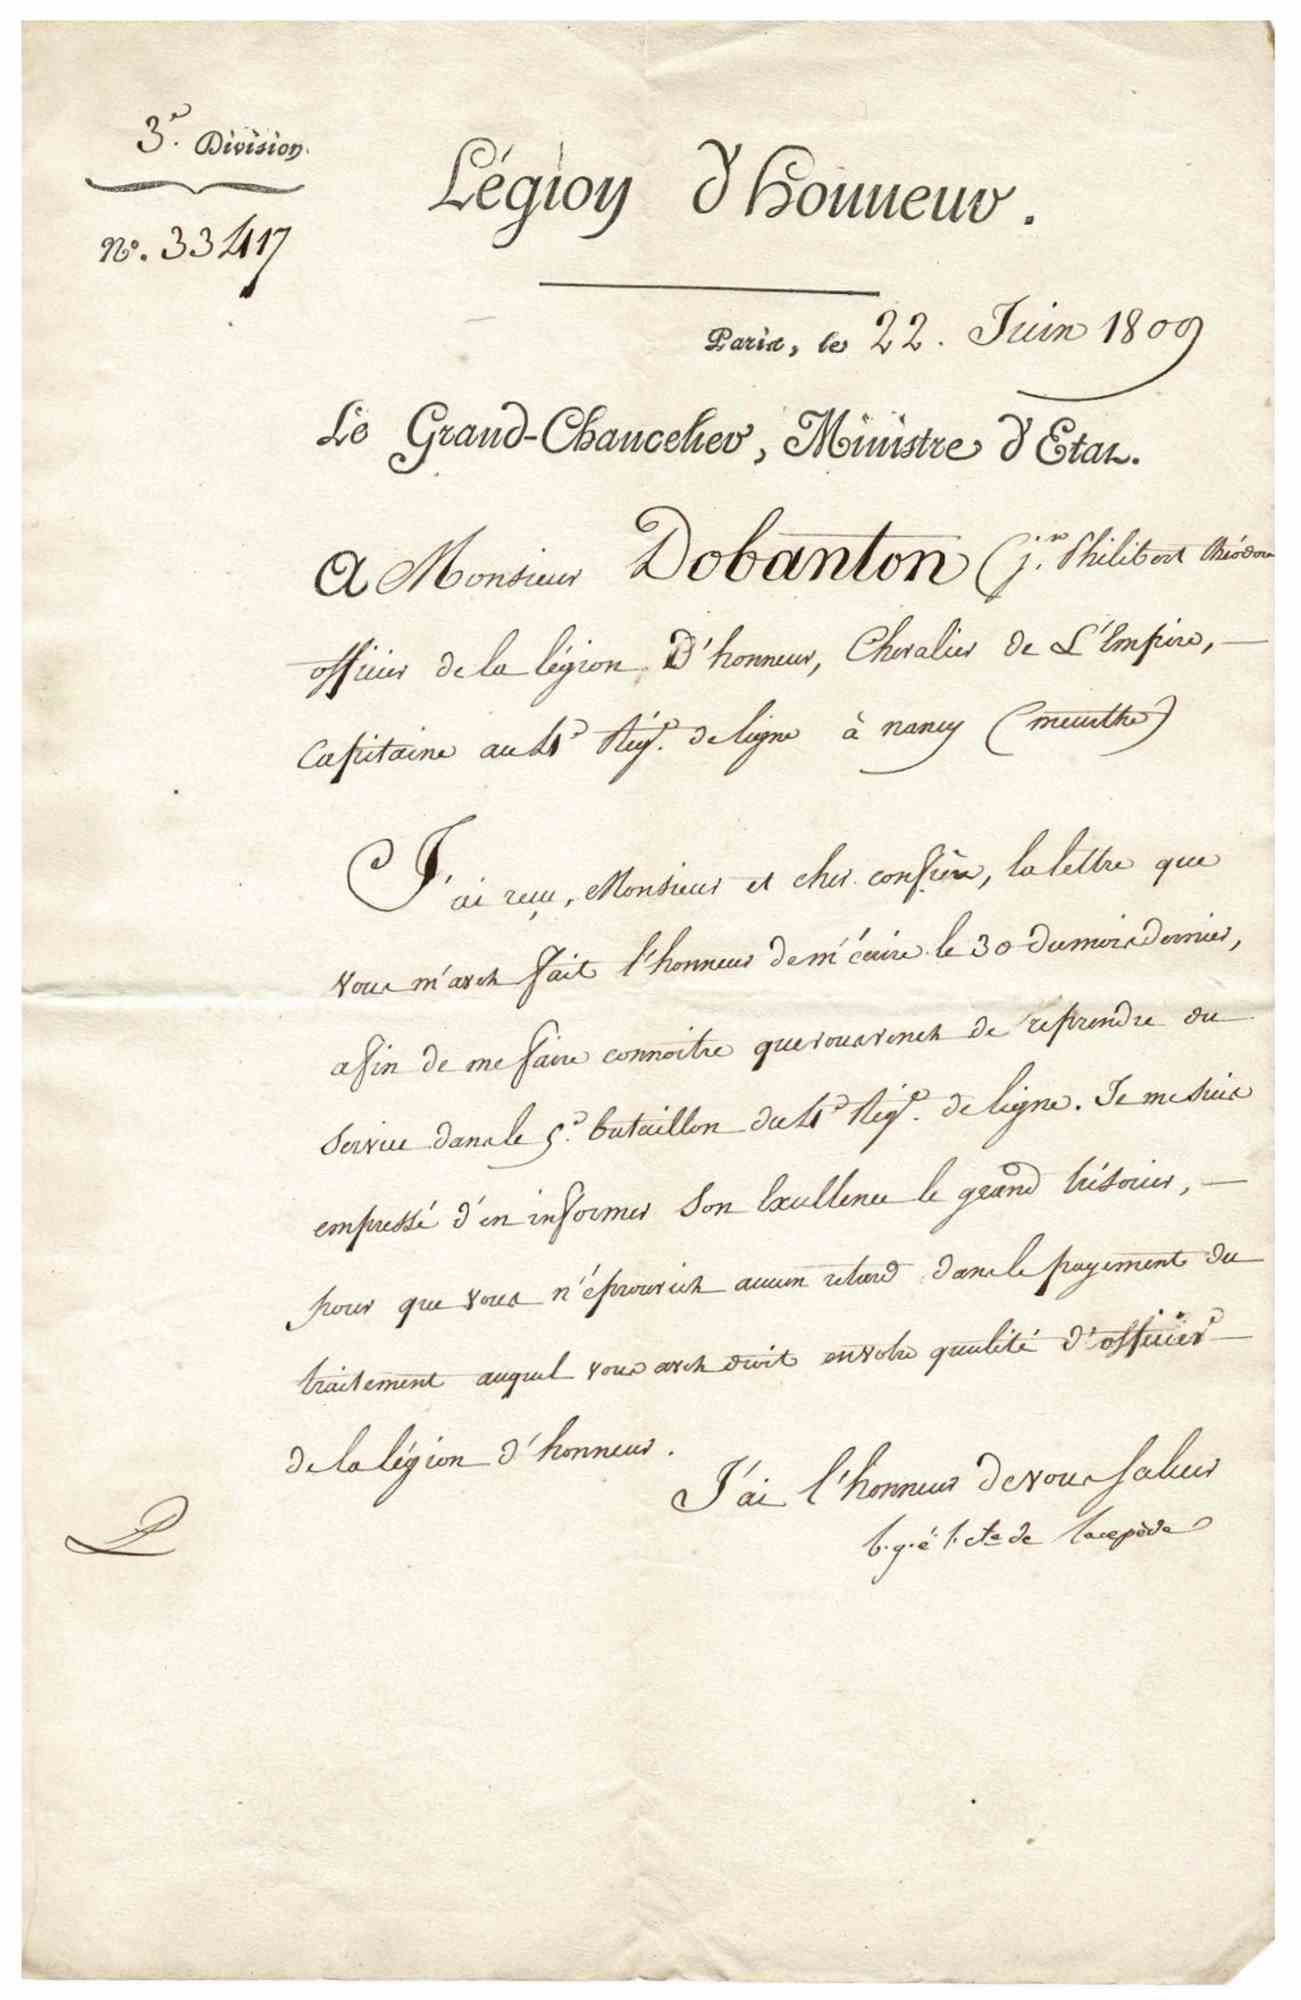 3.e Division.
N.o 33417
Légion d'honneur.
Paris, le 22. Juin 1809
Le Grand-Chancelier, Ministre d'Etat.
A Monsieur Dobanton (j.n Philibert théodore
officier de la légion D'honneur, Chevalier de L'Empire, —
Capitaine au 4e Rég.t de ligne à nancy (meurthe)
J'ai reçu, Monsieur et cher confrère, la lettre que
vous m'avez fait l'honneur de m'écrire le 30 du mois dernier,
afin de me faire connoitre que vous venez de reprendre du
service dans le 5.e bataillon du 4e Rég.t de ligne. Je me suis
empressé d'en informer Son Excellence le grand trésorier, —
pour que vous n'éprouviez aucun retard dans le payement du
traitement auquel vous avez droit en votre qualité d'officier —
de la légion d'honneur.
J'ai l'honneur de vous saluer
b. g. é. l. cte de lacepède